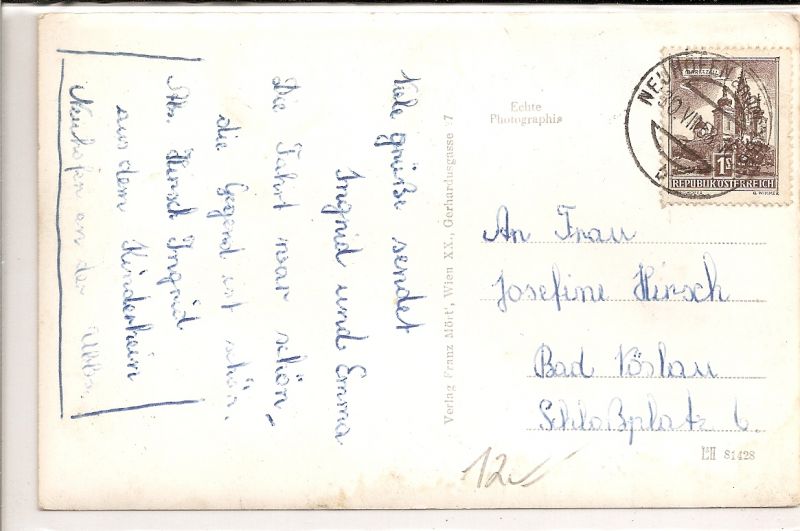 Viele grüße sendet
Ingrid und Emma
Die Fahrt war schön,
die Gegend ist schön.
Abs. Hirsch Ingrid
aus dem Kinderheim
Neuhofen an der Ybbs.
Verlag Franz Mört, Wien XX., Gerhardusgasse 7
Echte
Photographie
NEUHOFEN
1S
REPUBLIK ÖSTERREICH
An Frau
Josefine Hirsch
Bad Vöslau
Schloßplatz 6.
81428
12